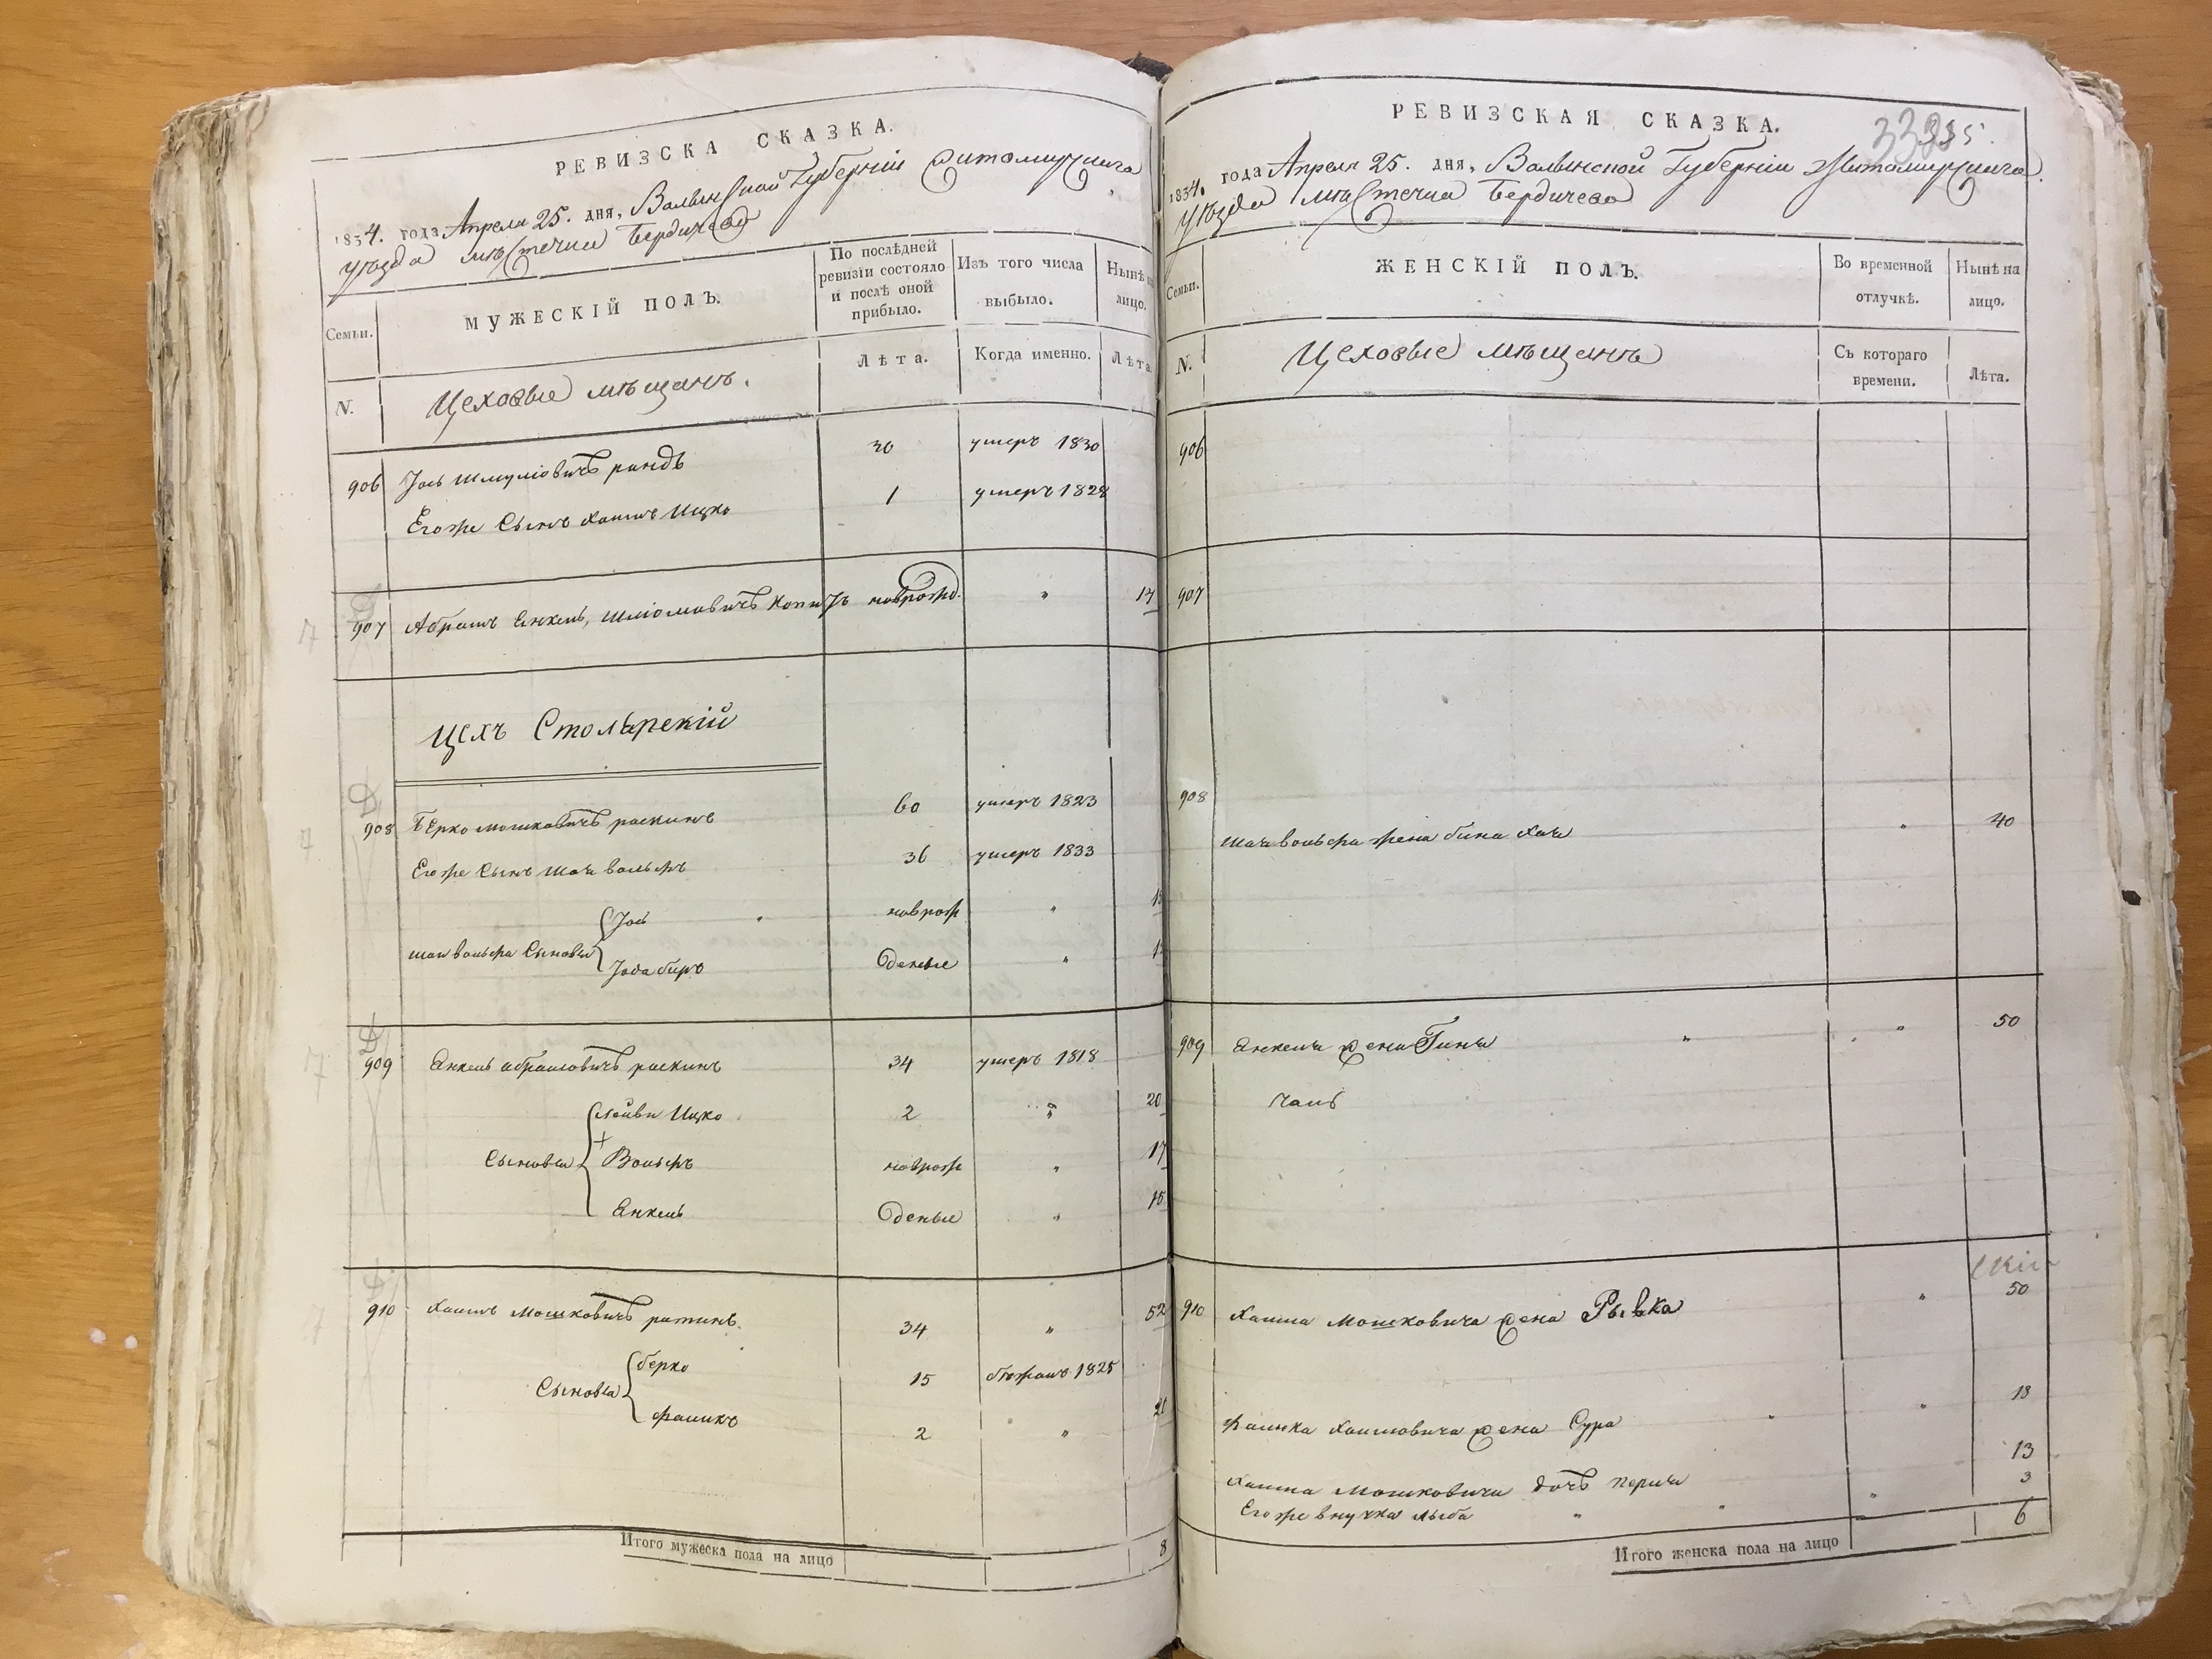 РЕВИЗСКА СКАЗКА.
1834. года Апреля 25. дня, Волынской Губерніи Житомирскаго
уѣзда мѣстечка Бердичева
Семьи.
МУЖЕСКІЙ ПОЛЪ.
По послѣдней
ревизіи состояло
и послѣ оной
прибыло.
Изъ того числа
выбыло.
Нынѣ на
лицо.
N.
Цеховые мѣщанъ.
Лѣта.
Когда именно.
Лѣта.
906 Іось Шмуліовичъ 30 умеръ 1830
Егоже Сынъ Хаимъ Ицко 1 умеръ 1828
907 Абрамъ Енкель, Шліомовичъ новрожд. " 17
Цехъ Столярскій
908 Берко Мошковичъ раскинъ 60 умеръ 1823
Егоже Сынъ Шая вольфъ 36 умеръ 1833
Іось новрож "
Шаи вольфа Сыновья Оденые "
909 Енкель абрамовичъ раскинъ 34 умеръ 1818
Лейби Ицко 2 " 20
Сыновья Вольфъ новрож " 17
Енкель Оденые " 15
910 Хаимъ Мошковичъ 34 " 52
берко 15 бѣжалъ 1825
Сыновья фаликъ 2 " 21
Итого мужеска пола на лицо 8
РЕВИЗСКАЯ СКАЗКА.
335.
1834. года Апреля 25. дня, Волынской Губерніи Житомирскаго
уѣзда мѣстечка Бердичева
Семьи.
ЖЕНСКІЙ ПОЛЪ.
Во временной
отлучкѣ.
Нынѣ на
лицо.
N.
Цеховые мѣщанъ
Съ котораго
времени.
Лѣта.
906
907
908
Шаи вольфа жена бина Хая " 40
909 Енкеля жена " 50
910 Хаима Мошковича жена Рывка " 50
Фалика Хаимовича жена Сура " 18
Хаима Мошковича дочь перля " 13
Егоже внучка " 3
Итого женска пола на лицо 6